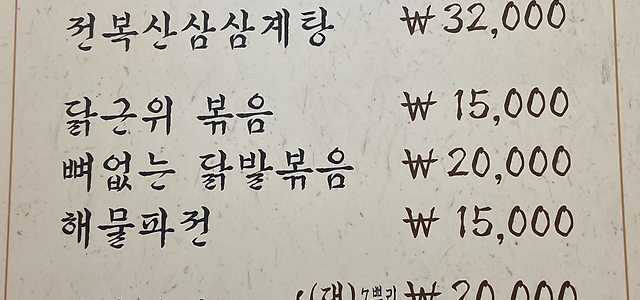 전복산삼삼계탕 ₩ 32,000
닭근위 볶음 ₩ 15,000
뼈없는 닭발볶음 ₩ 20,000
해물파전 ₩ 15,000
(대) 7뿌리 ₩ 20,000